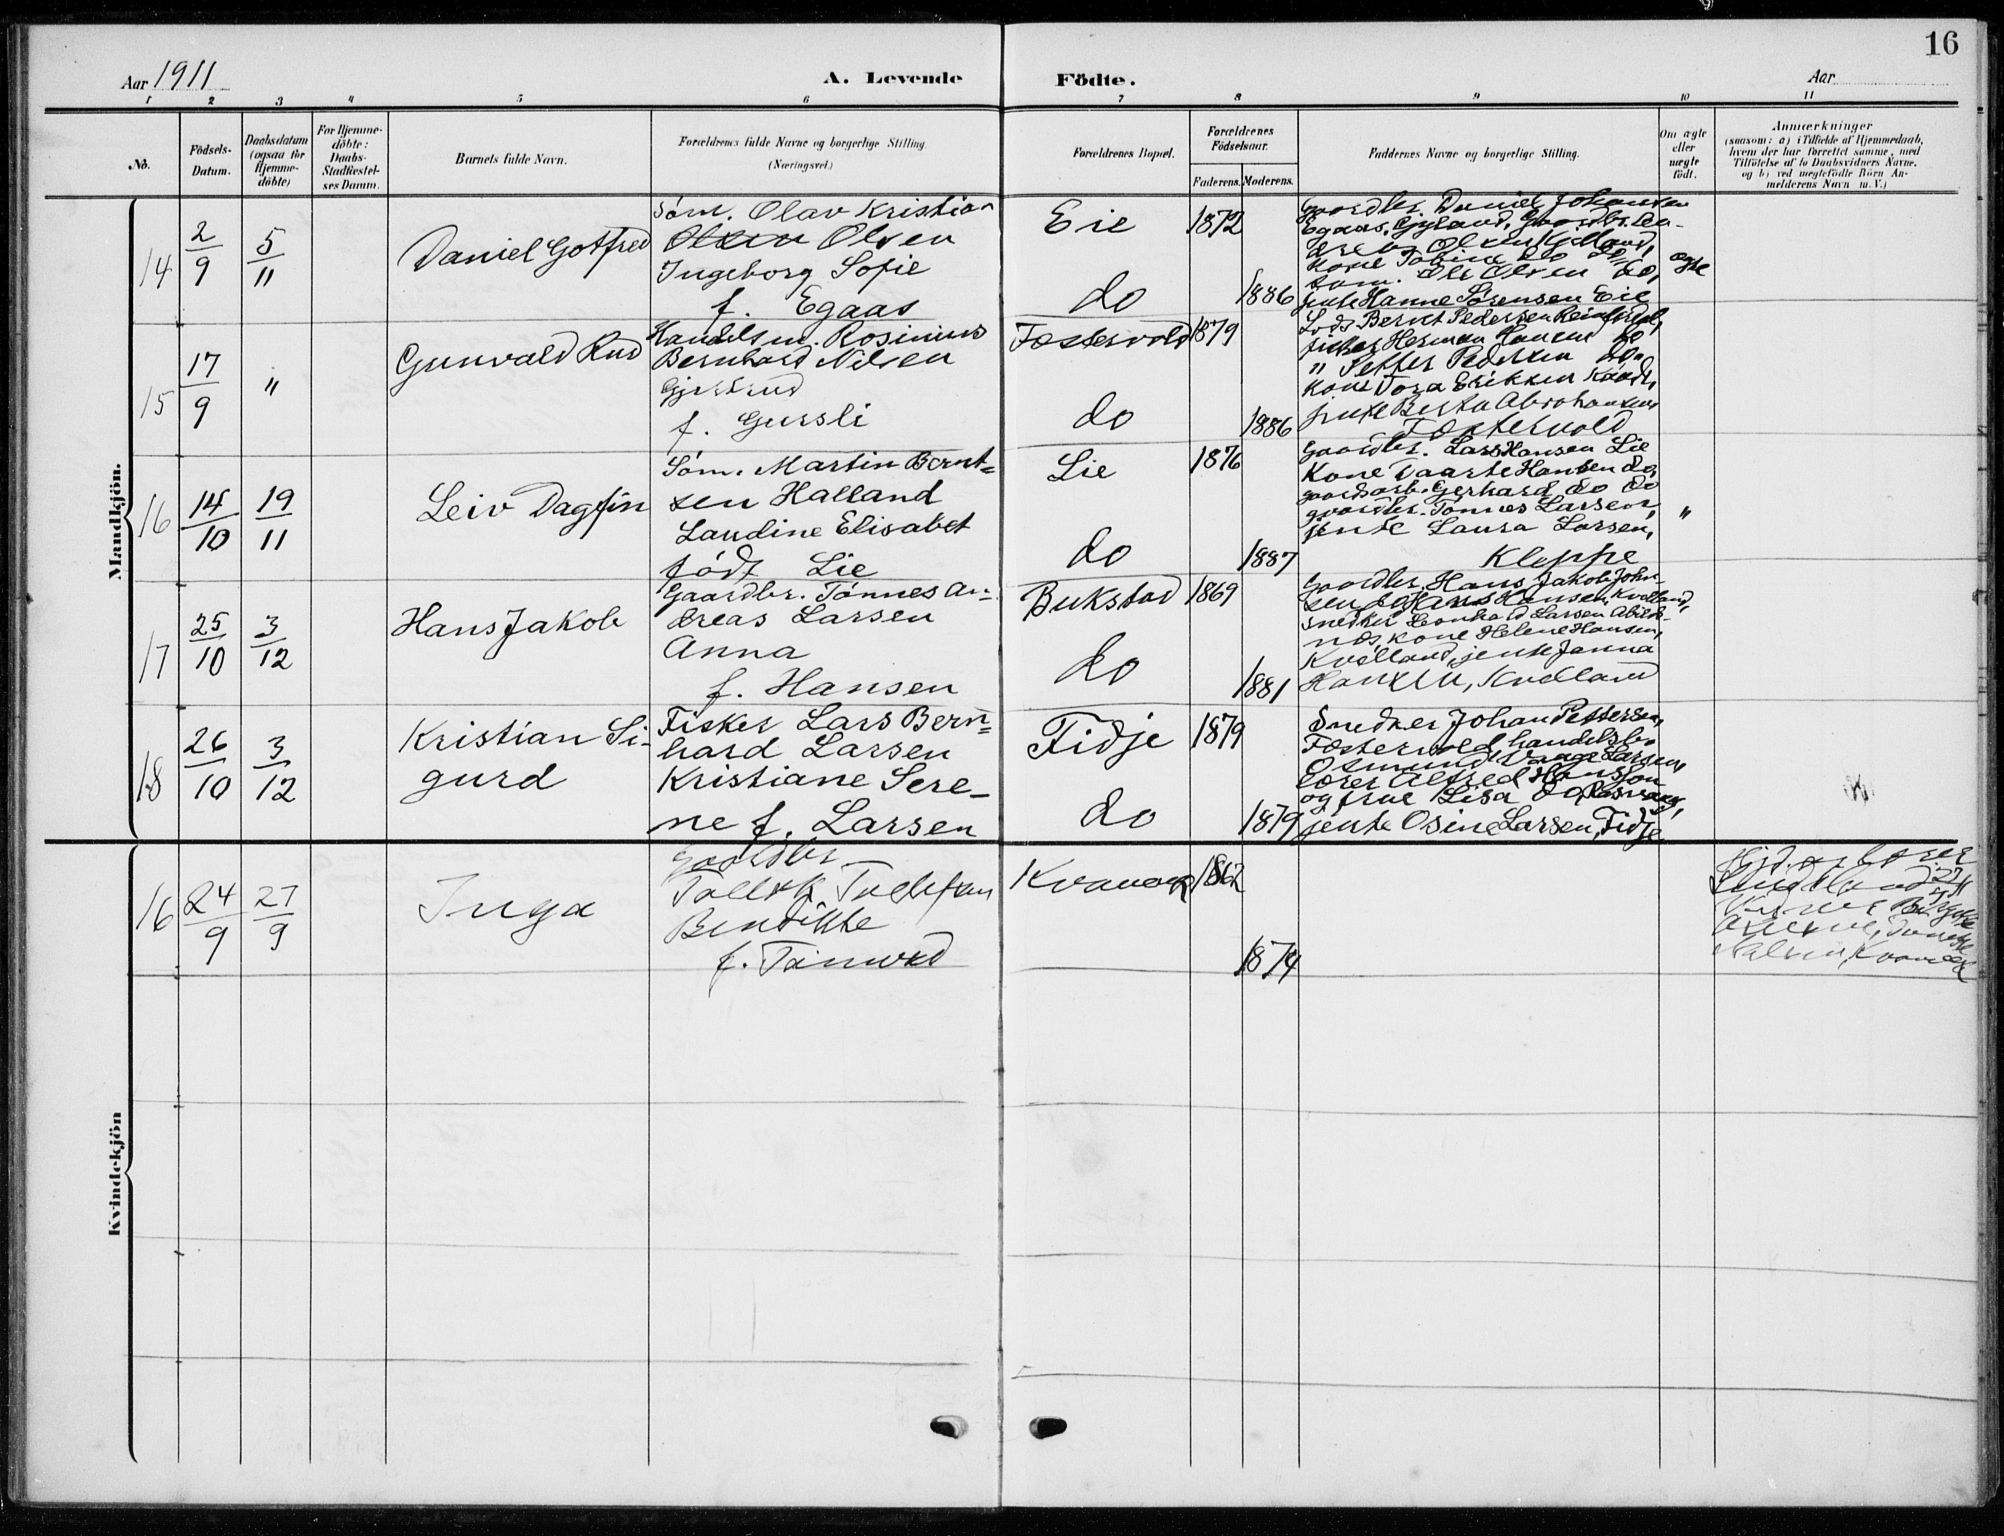 16
Aar 1911
A. Levende
Födte.
Aar
1 2 3 4 5 6 7 8 9 10 11
No.
Födsels-
Datum.
Daabsdatum
(ogsaa for
Hjemme-
döbte)
For Hjemme-
döbte:
Daabs-
Stadfæstel-
ses Datum.
Barnets fulde Navn.
Forældrenes fulde Navne og borgerlige Stilling
(Næringsvei.)
Forældrenes Bopæl.
Forældrenes
Födselsaar.
Faderens.
Moderens.
Faddernes Navne og borgerlige Stilling.
Om ægte
eller
uægte
födt.
Anmærkninger
(saasom: a) i Tilfælde af Hjemmedaab,
hvem der har forrettet samme, med
Tilföielse af to Daabsvidners Navne,
og b) ved uegtefödte Börn An-
melderens Navn m. V.)
Mandkjön.
14
2/9
5/11
Daniel Gotfred
Søm. Olav Kristian
Olsen
Ingeborg Sofie
f. Egaas
Eie
do
1872
1886
Gaardbr. Daniel Johansen
Egaas, Gyland, Gaardbr. An-
Kone Tobine do do
Søm. Ole Olsen do,
jente Hanne Sørensen Eie
ægte
15
17/9
"
Gunvald Rud
Handelsm. Rosinius
Bernhard Nilsen
Gjertrud
f. Gursli
Fostervold
do
1879
1886
Lods Bernt Pedersen
fisker Herman Hansen do
" Petter Pedersen do.
Kone Tora Eriksen
jente Berta Abrahamsen
Fostervold
16
14/10
19/11
Leiv Dagfin
Søm. Martin Bernt-
sen Halland
Laudine Elisabet
født Lie
Lie
do
1876
1887
Gaardbr. Lars Hansen Lie
Kone Vaarte Hansen do,
gaardsarb. Gerhard do do
gaardbr. Tønnes Larsen,
jente Laura Larsen,
Kleppe
"
17
25/10
3/12
Hans Jakob
Gaardbr. Tønnes An-
dreas Larsen
Anna
f. Hansen
Bukstad
do
1869
1881
Gaardbr. Hans Jakob John-
sen Hans Hansen, Kvelland,
snedker Leonhard Larsen Abils-
næs, kone Helene Hansen,
Kvelland, jente Janna
Hansen, Kvelland
18
26/10
3/12
Kristian Si-
gurd
Fisker Lars Bern-
hard Larsen
Kristiane Sere-
ne f. Larsen
Fidje
do
1879
1879
Snedker Johan Pettersen,
Fostervold, handelsbr.
Osmund Vaage Larsen,
Lærer Alfred Hansson
og frue Lisa do,
jente Osine Larsen, Fidje
Kvindekjön
16
24/9
27/9
Inga
Gaardbr.
Tallak Tallaksen
Bendikte
f.
1862
1874